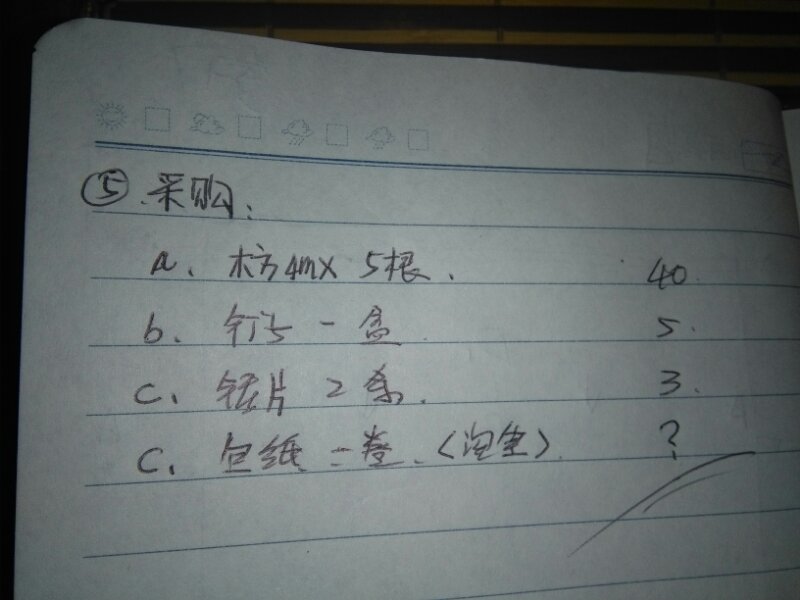 ⑤.采购:
a. 木方4m× 5根. 40.
b. 钉子 一盒 5.
c. 锯片 2条. 3.
c. 包纸 二卷.(淘宝) ?